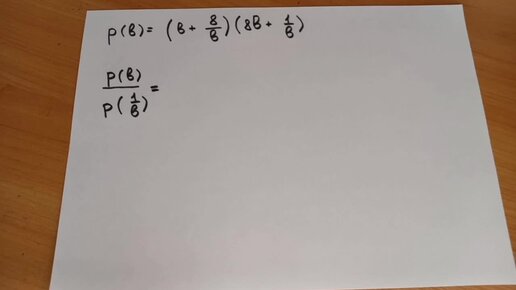 p(b) = (b + 8/b)(8b + 1/b)
p(b)/p(1/b) =